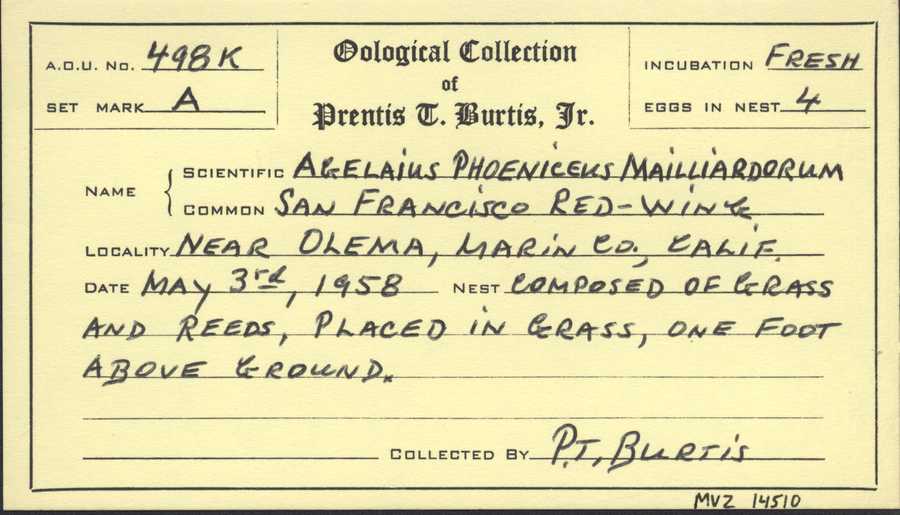 A.O.U. No. 498K
SET MARK A
Oological Collection
of
Prentis T. Burtis, Jr.
INCUBATION FRESH
EGGS IN NEST 4
NAME
SCIENTIFIC AGELAIUS PHOENICEUS MAILLIARDORUM
COMMON SAN FRANCISCO RED-WING
LOCALITY NEAR OLEMA, MARIN CO., CALIF.
DATE MAY 3rd, 1958 NEST COMPOSED OF GRASS
AND REEDS, PLACED IN GRASS, ONE FOOT
ABOVE GROUND.
COLLECTED BY P.T. BURTIS
MVZ 14510